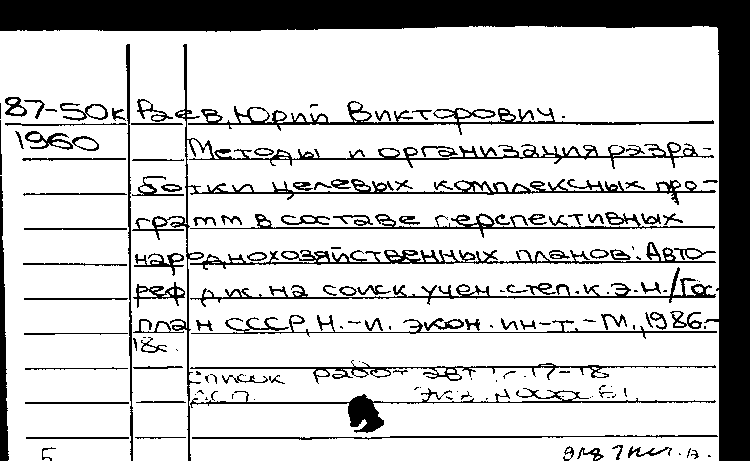 87-50к Раев, Юрий Викторович.
1960 Методы и организация разра-
ботки целевых комплексных про-
грамм в составе перспективных
народнохозяйственных планов: Авто-
реф дис. на соиск. учен. степ. к. э. н. / Гос-
план СССР, Н.-и. экон. ин-т. - М., 1986.-
18с.
Список работ авт.: с. 17-18
Экз.
Б